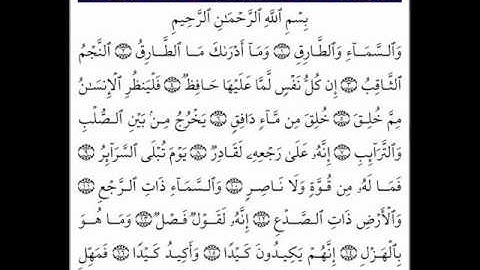 بِسْمِ اللَّهِ الرَّحْمَـٰنِ الرَّحِيمِ
وَالسَّمَاءِ وَالطَّارِقِ ۝١ وَمَا أَدْرَىٰكَ مَا الطَّارِقُ ۝٢ النَّجْمُ
الثَّاقِبُ ۝٣ إِن كُلُّ نَفْسٍ لَّمَّا عَلَيْهَا حَافِظٌ ۝٤ فَلْيَنظُرِ الْإِنسَـٰنُ
مِمَّ خُلِقَ ۝٥ خُلِقَ مِن مَّاءٍ دَافِقٍ ۝٦ يَخْرُجُ مِنۢ بَيْنِ الصُّلْبِ
وَالتَّرَائِبِ ۝٧ إِنَّهُ عَلَىٰ رَجْعِهِ لَقَادِرٌ ۝٨ يَوْمَ تُبْلَى السَّرَائِرُ ۝٩
فَمَا لَهُ مِن قُوَّةٍ وَلَا نَاصِرٍ ۝١٠ وَالسَّمَاءِ ذَاتِ الرَّجْعِ ۝١١
وَالْأَرْضِ ذَاتِ الصَّدْعِ ۝١٢ إِنَّهُ لَقَوْلٌ فَصْلٌ ۝١٣ وَمَا هُوَ
بِالْهَزْلِ ۝١٤ إِنَّهُمْ يَكِيدُونَ كَيْدًا ۝١٥ وَأَكِيدُ كَيْدًا ۝١٦ فَمَهِّلِ